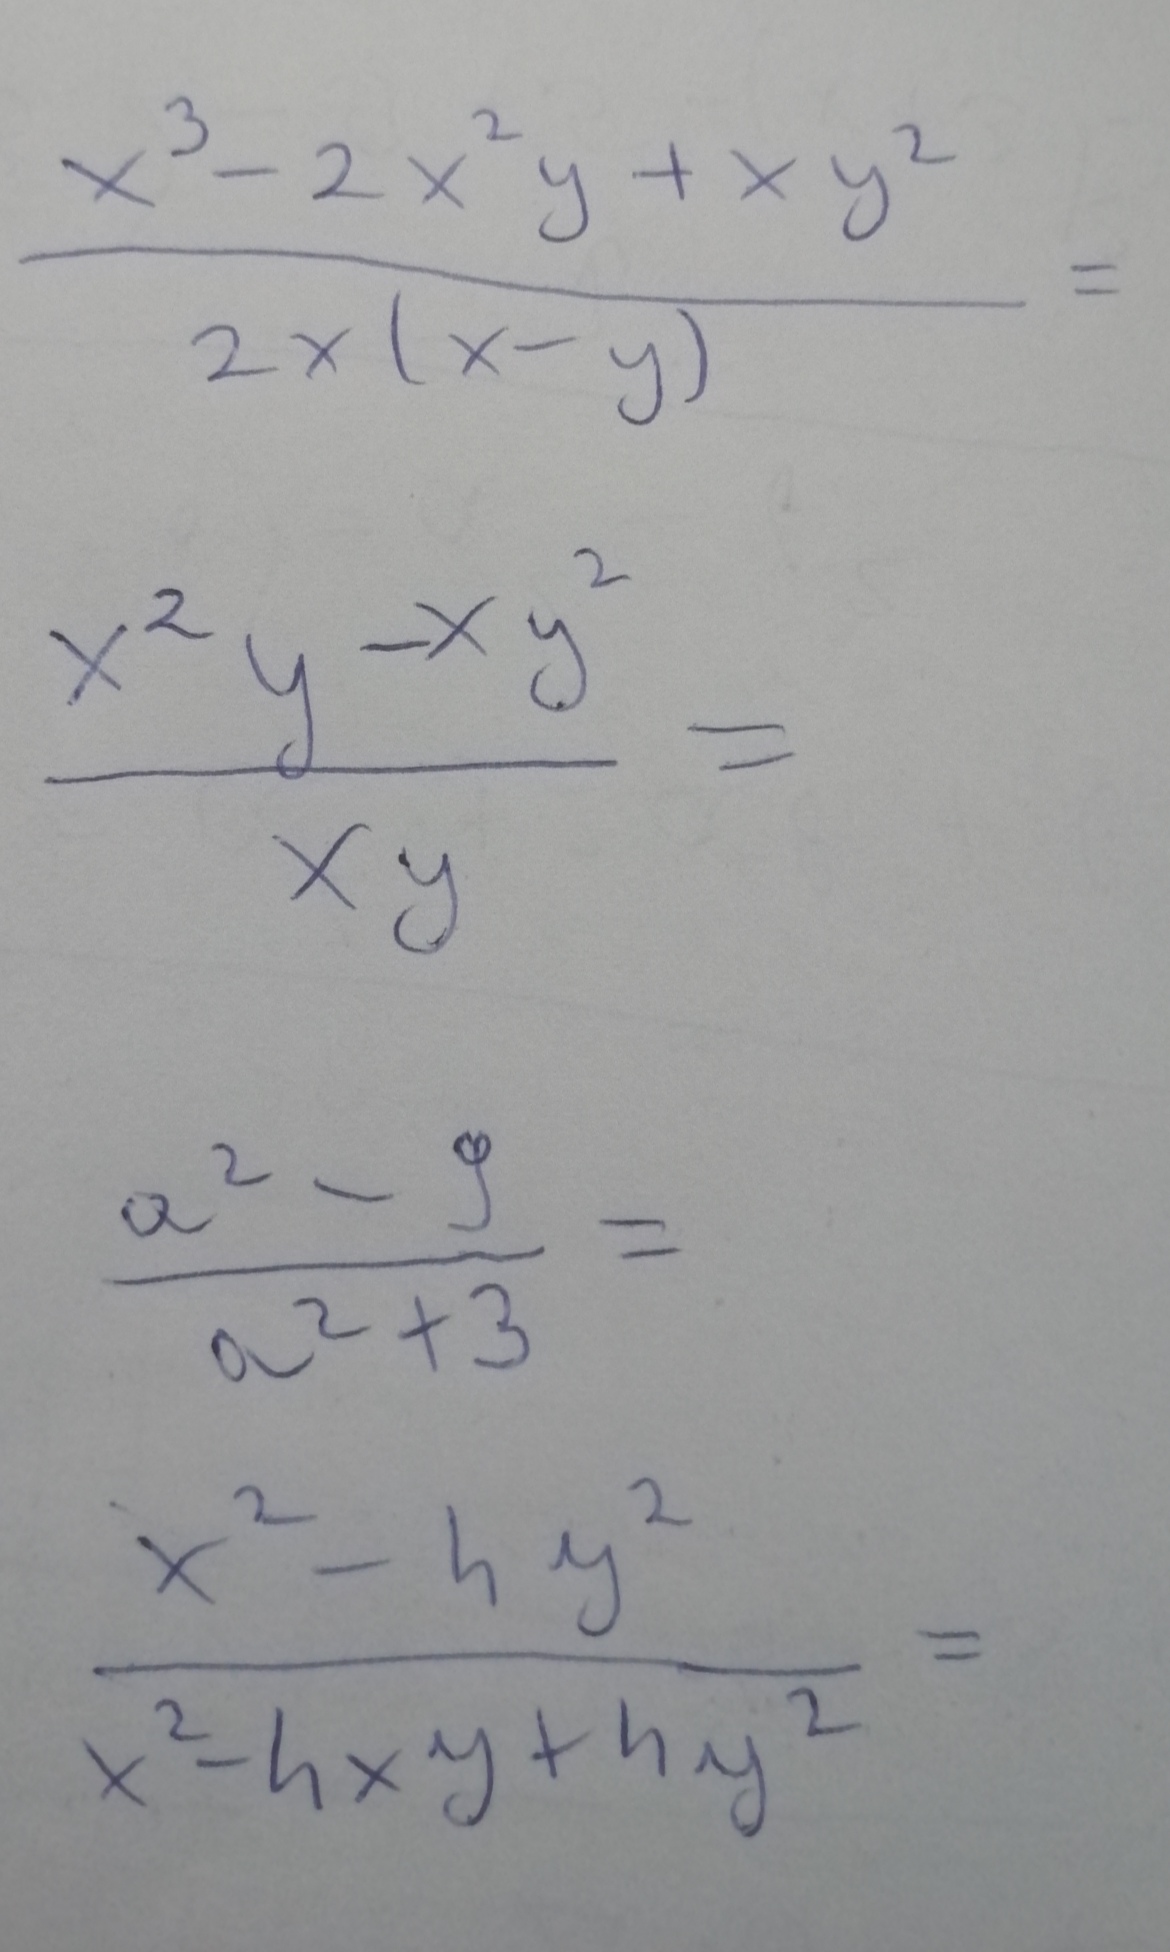 x³ - 2x²y + xy²
2x(x - y) =
x²y - xy²
xy =
a² - 9
a² + 3 =
x² - 4y²
x² - 4xy + 4y² =